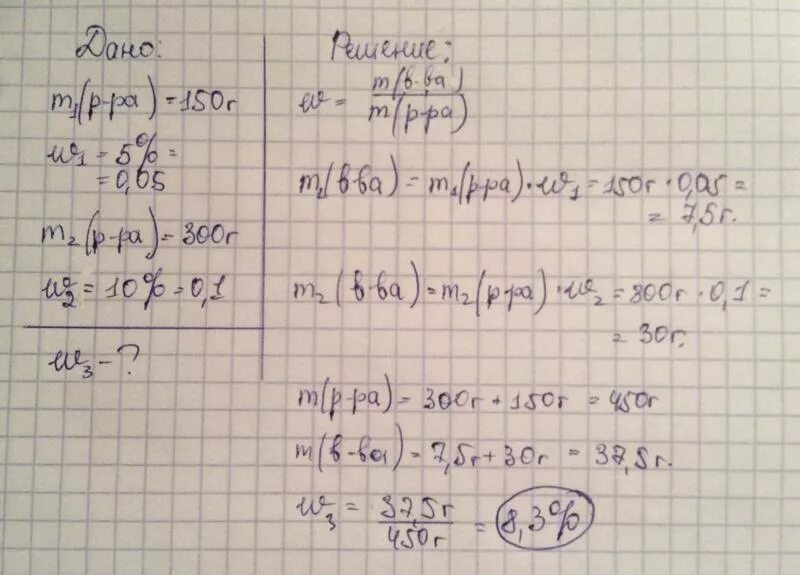 Дано:
m₁(р-ра) = 150г
w₁ = 5% =
= 0,05
m₂(р-ра) = 300г
w₂ = 10% = 0,1
w₃ - ?
Решение:
w = m(в-ва) / m(р-ра)
m₁(в-ва) = m₁(р-ра) · w₁ = 150г · 0,05 =
= 7,5г.
m₂(в-ва) = m₂(р-ра) · w₂ = 300г · 0,1 =
= 30г.
m(р-ра) = 300г + 150г = 450г
m(в-ва) = 7,5г + 30г = 37,5г.
w₃ = 37,5г / 450г = 8,3%